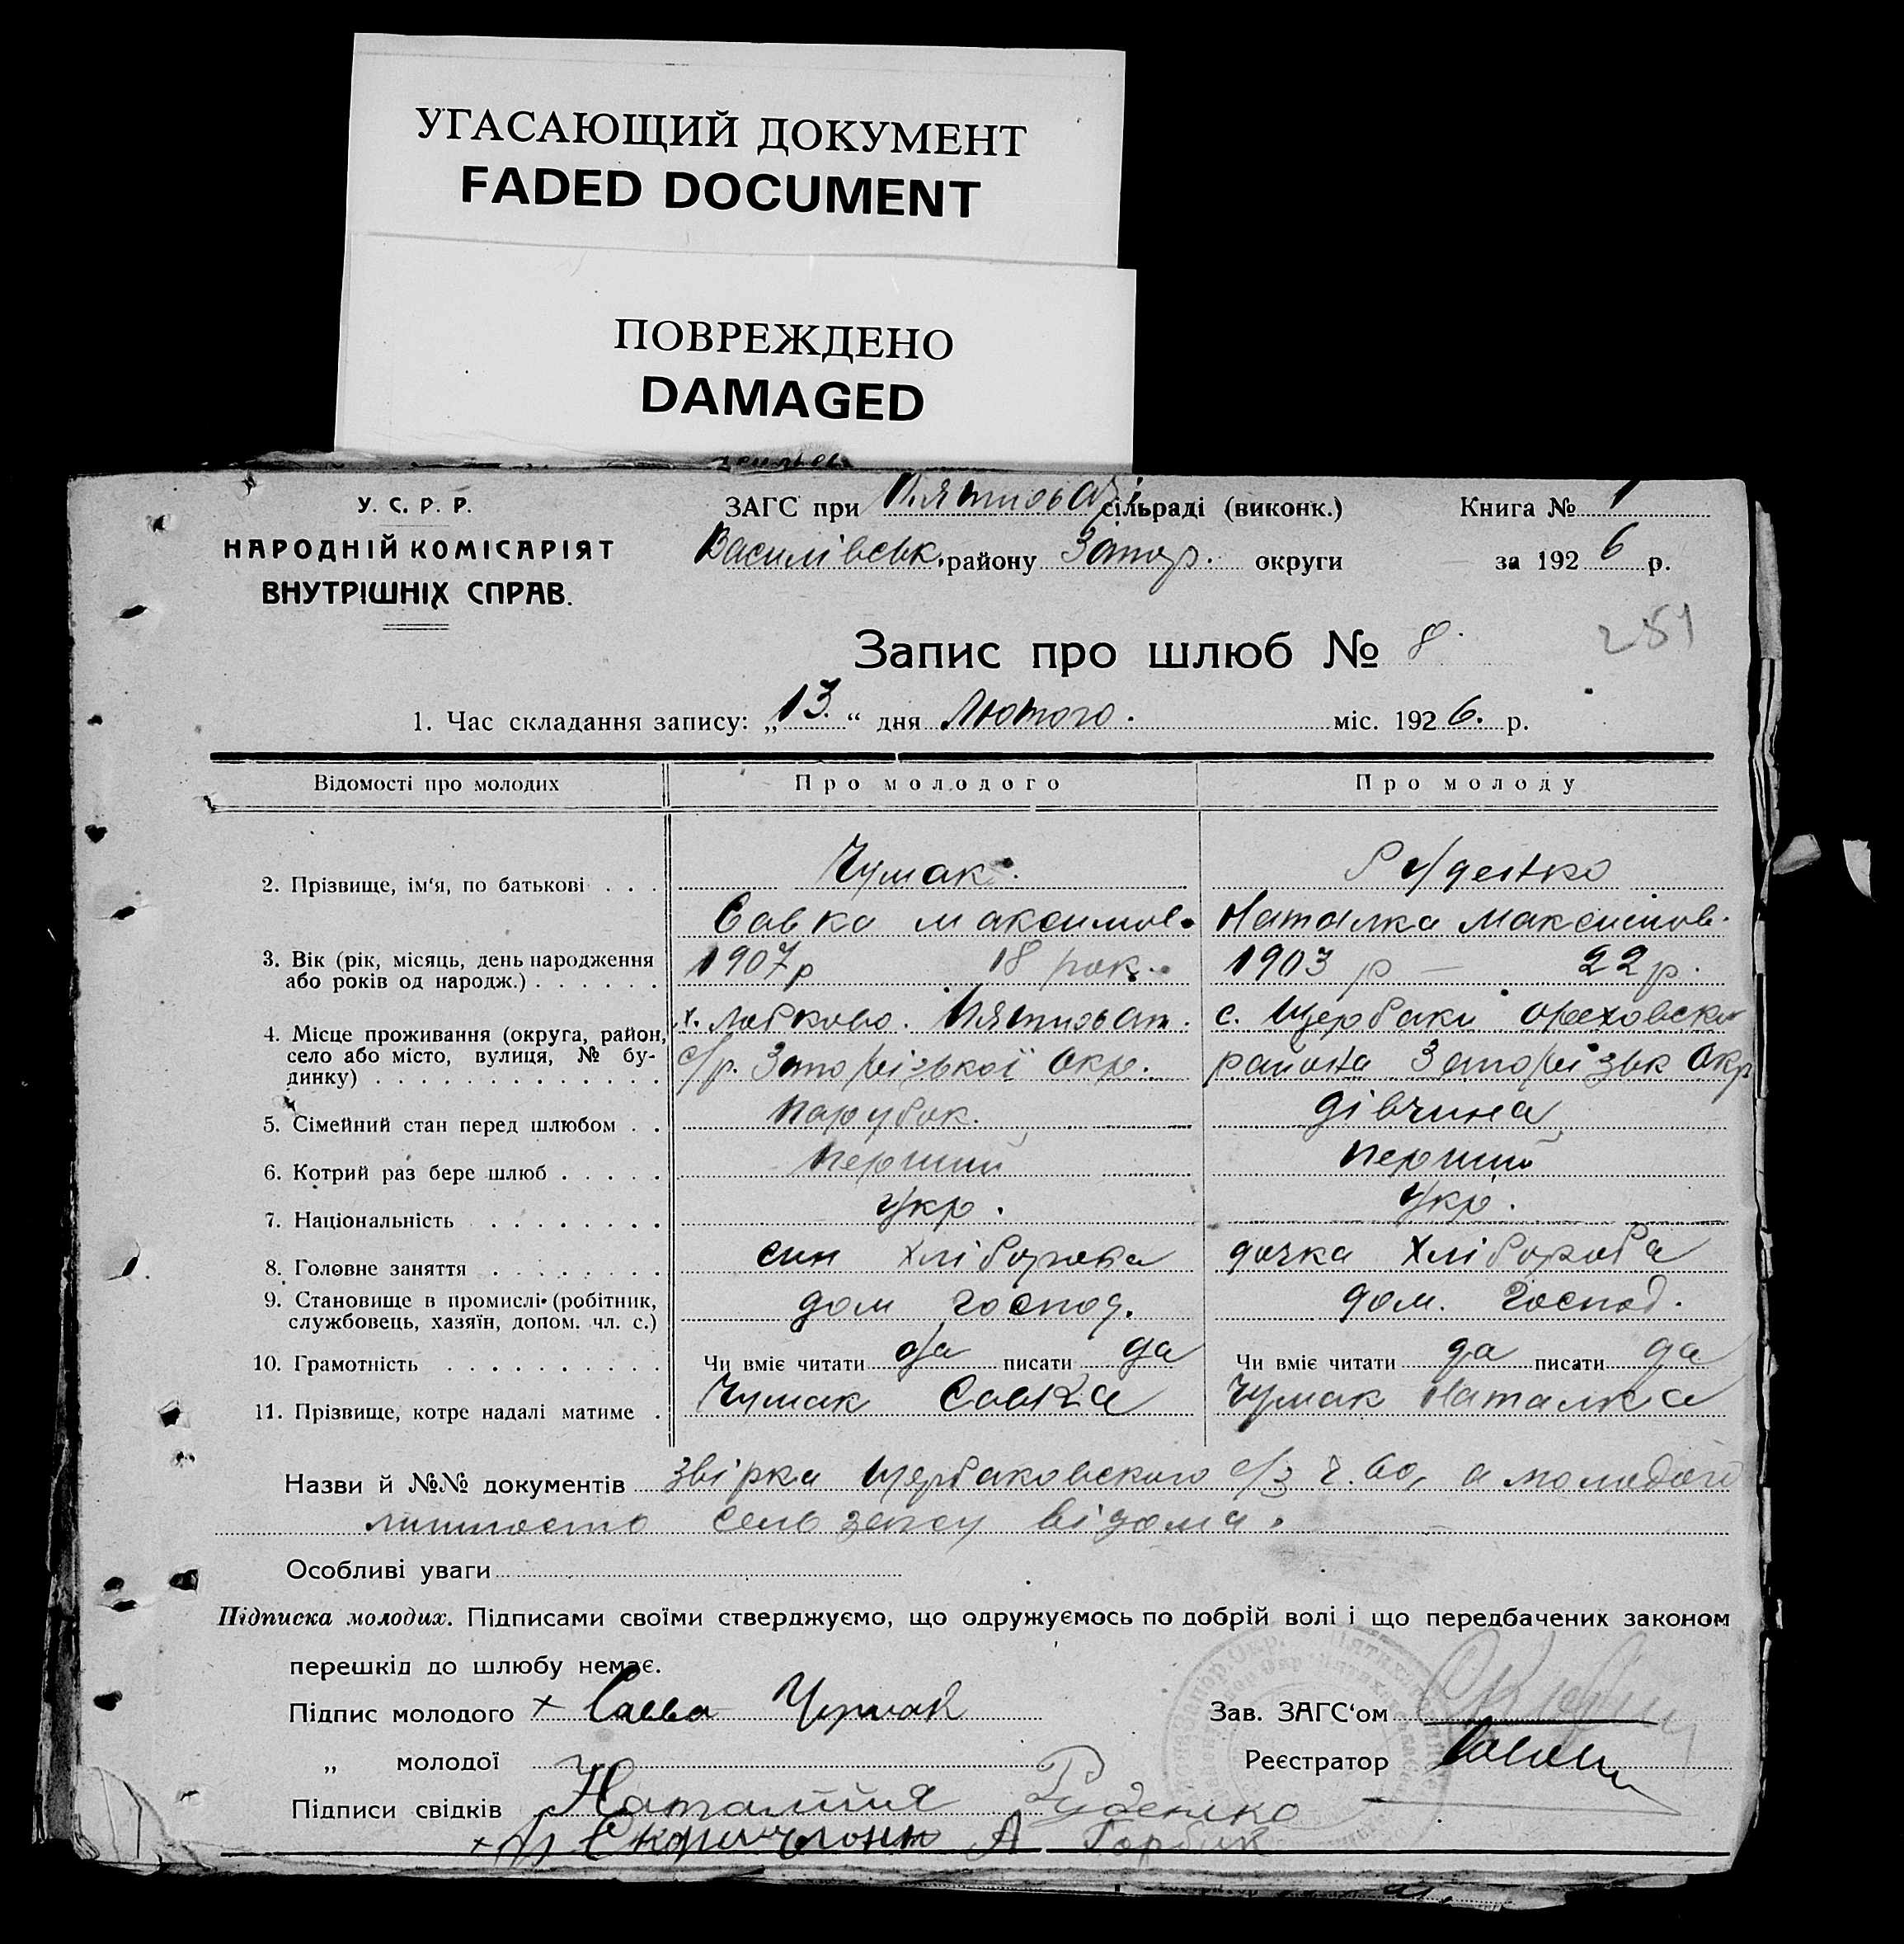 УГАСАЮЩИЙ ДОКУМЕНТ
FADED DOCUMENT
ПОВРЕЖДЕНО
DAMAGED
У. С. Р. Р.
НАРОДНІЙ КОМІСАРІЯТ
ВНУТРІШНІХ СПРАВ.
ЗАГС при сільраді (виконк.) Книга № 1
Василівськ. району Запор. округи за 1926 р.
Запис про шлюб № 8.
251
1. Час складання запису: „13.“ дня Лютого. міс. 1926. р.
Відомості про молодих Про молодого Про молоду
2. Прізвище, ім‘я, по батькові . . . Чумак. Руденко
Савка Максимов. Наталка Максимов.
3. Вік (рік, місяць, день народження
або років од народж.) . . . . . . 1907р 18 рок. 1903 р — 22 р.
4. Місце проживання (округа, район,
село або місто, вулиця, № бу-
динку) . . . . . . . . . . . . .
х. с. Щербаки Ореховск
с/р. Запорізької Окр. района Запорізьк Окр
5. Сімейний стан перед шлюбом . . парубок. дівчина
6. Котрий раз бере шлюб . . . . . перший перший
7. Національність . . . . . . . . укр. укр.
8. Головне заняття . . . . . . . син хлібороба дочка хлібороба
9. Становище в промислі (робітник,
службовець, хазяїн, допом. чл. с.) дом господ. дом. господ.
10. Грамотність . . . . . . . . . . Чи вміє читати да писати да Чи вміє читати да писати да
11. Прізвище, котре надалі матиме . Чумак Савка Чумак Наталка
Назви й №№ документів звірка Щербаковского с/з ч. 60, а молодого
сельзагсу відома.
Особливі уваги
Підписка молодих. Підписами своїми стверджуємо, що одружуємось по добрій волі і що передбачених законом
перешкід до шлюбу немає.
Підпис молодого × Савва Чумак Зав. ЗАГС‘ом
„ молодої Реєстратор
Підписи свідків Наталия Руденко
А Горбик